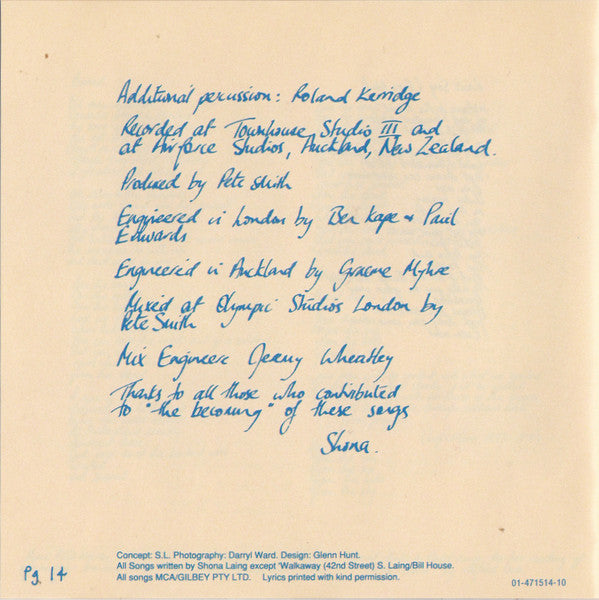 Additional percussion: Roland Kerridge
Recorded at Townhouse Studio III and
at Airforce Studios, Auckland, New Zealand.
Produced by Pete Smith
Engineered in London by Ben Kape + Paul
Edwards
Engineered in Auckland by Graeme Myhre
Mixed at Olympic Studios London by
Pete Smith
Mix Engineer Jeremy Wheatley
Thanks to all those who contributed
to "the becoming" of these songs
Shona.
Concept: S.L. Photography: Darryl Ward. Design: Glenn Hunt.
All Songs written by Shona Laing except 'Walkaway (42nd Street) S. Laing/Bill House.
Pg. 14
All songs MCA/GILBEY PTY LTD. Lyrics printed with kind permission.
01-471514-10